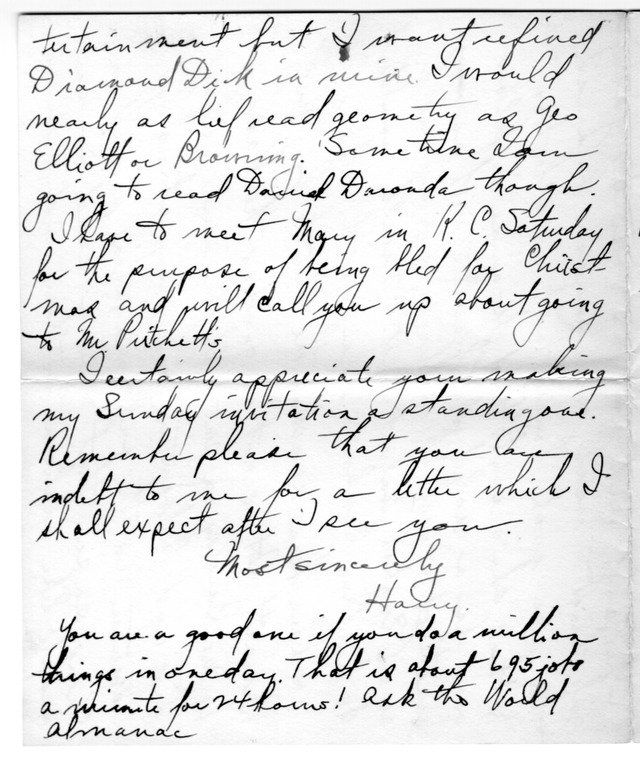 tertainment but I want refined
Diamond Dick in mine. I would
nearly as lief read geometry as Geo
Elliott or Browning. Sometime I am
going to read Daniel Daronda though.
I have to meet Mary in K. C. Saturday
for the purpose of being bled for Christ-
mas and will call you up about going
to Mr Pritchett's
I certainly appreciate your making
my Sunday invitation a standing one.
Remember please that you are
indebt to me for a letter which I
shall expect after I see you.
Most sincerely
Harry.
You are a good one if you do a million
things in one day. That is about 695 jobs
a minute for 24 hours! Ask the World
Almanac